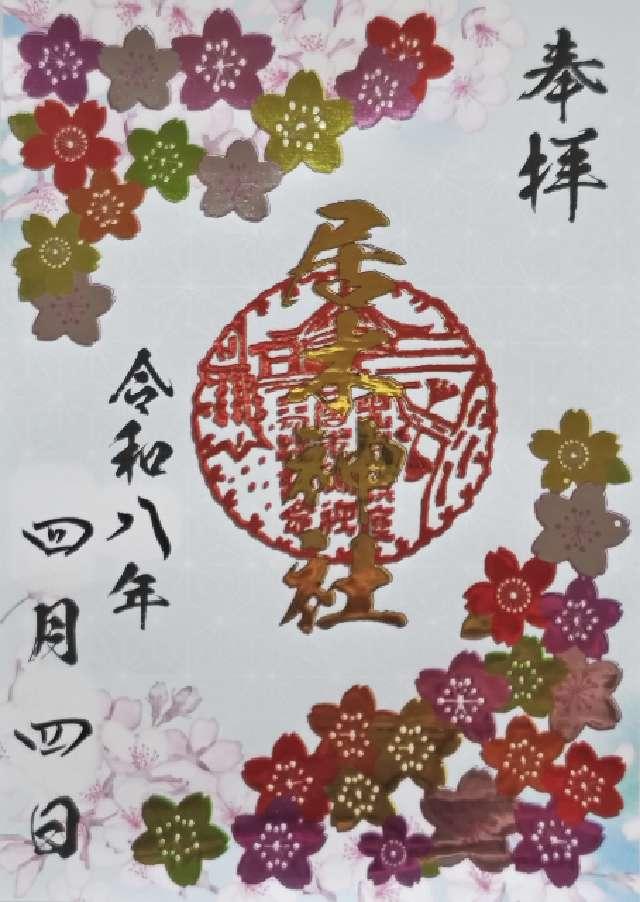 奉拝
居木神社
令和八年
四月四日